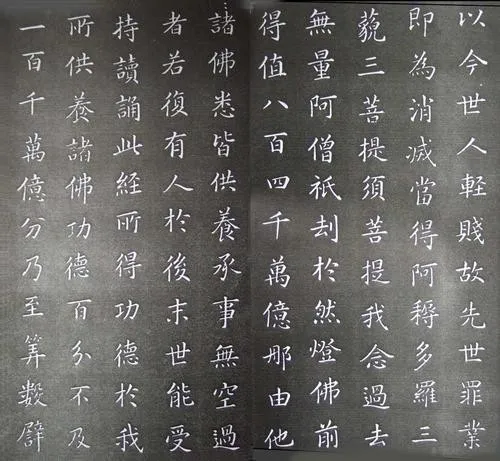 以今世人軽賤故先世罪業
即為消滅當得阿耨多羅三
藐三菩提須菩提我念過去
無量阿僧祇刦於然燈佛前
得值八百四千萬億那由他
諸佛悉皆供養承事無空過
者若復有人於後末世能受
持讀誦此經所得功德於我
所供養諸佛功德百分不及
一百千萬億分乃至筭數譬